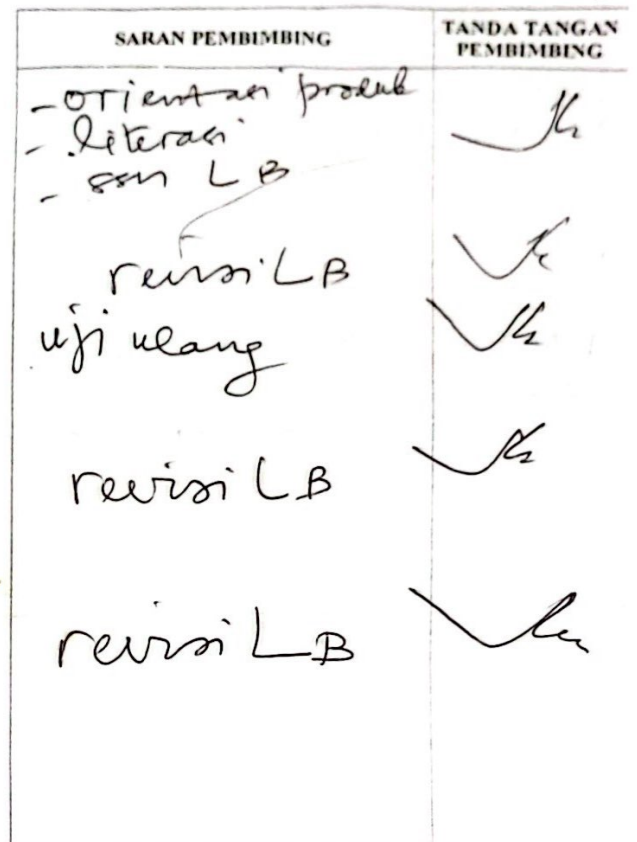 SARAN PEMBIMBING
TANDA TANGAN PEMBIMBING
- orientasi produk
- literasi
- ssn LB
revisi LB
uji ulang
revisi LB
revisi LB